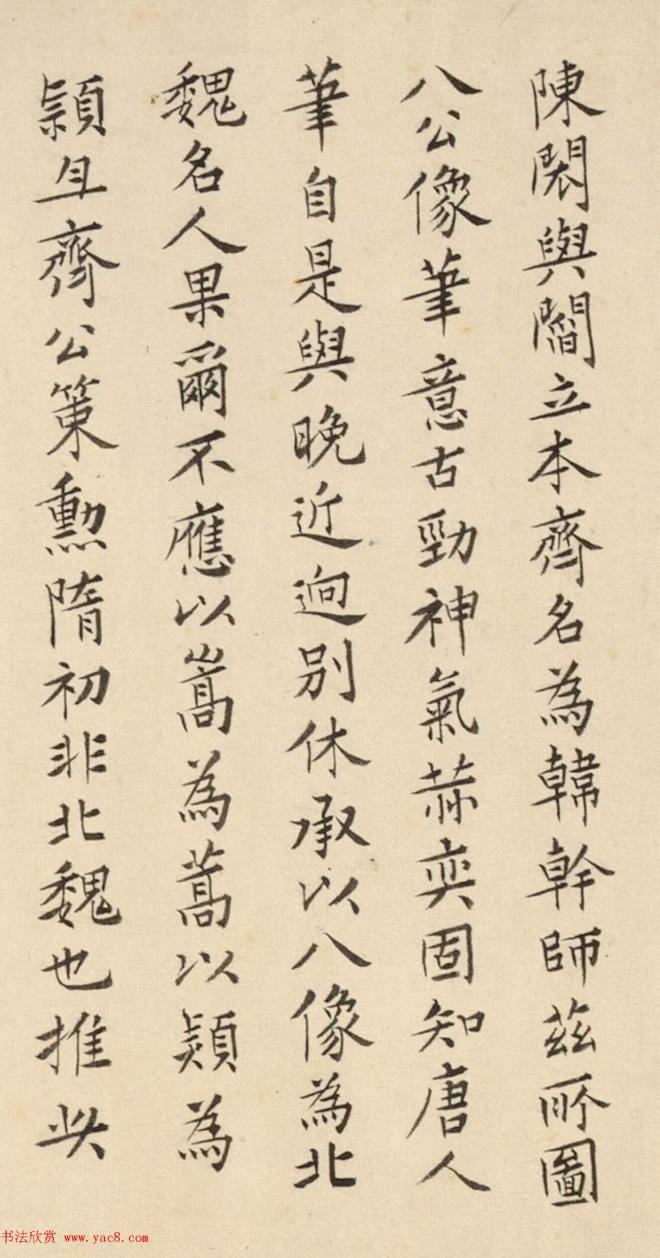 陳閎與閻立本齊名為韓幹師茲所圖
八公像筆意古勁神氣赫奕固知唐人
筆自是與晚近迥別休承以八像為北
魏名人果爾不應以嵩為蒿以熲為
潁且齊公策勳隋初非北魏也推此
书法欣赏 www.yac8.com